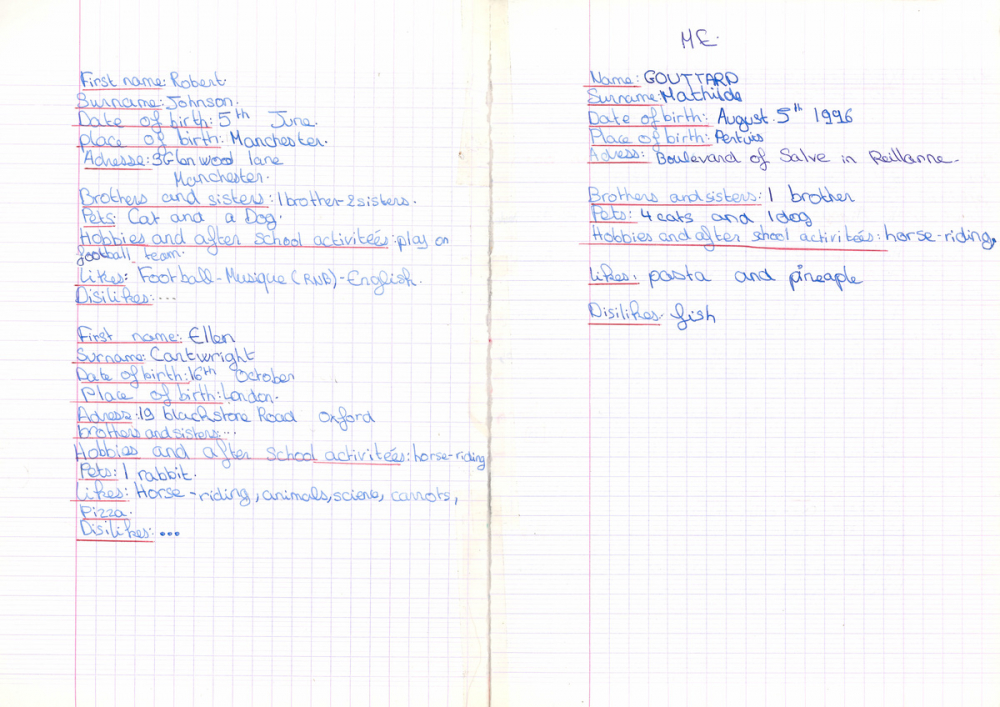 First name: Robert.
Surname: Johnson.
Date of birth: 5th June.
place of birth: Manchester.
Adresse: 3Glenwood lane
Manchester.
Brothers and sisters: 1brother-2sisters.
Pets: Cat and a Dog.
Hobbies and after school activiteés: play on
football team.
Likes: Football-Musique (RNB)-English.
Disilikes:....
First name: Ellen
Surname: Cartwright
Date of birth: 16th October
Place of birth: London.
Adress: 19 blackstone Road Oxford
brothers and sisters:...
Hobbies and after school activiteés: horse-riding
Pets: 1 rabbit.
Likes: Horse-riding, animals, sciene, carrots,
Pizza.
Disilikes: ...
ME.
Name: GOUTTARD
Surname: Mathilde
Date of birth: August 5th 1996
Place of birth: Pertuis
Adress: Boulevard of Salve in Reillanne.
Brothers and sisters: 1 brother
Pets: 4 cats and 1dog
Hobbies and after shool activiteés: horse-riding,
likes: pasta and pineaple
Disilikes: fish